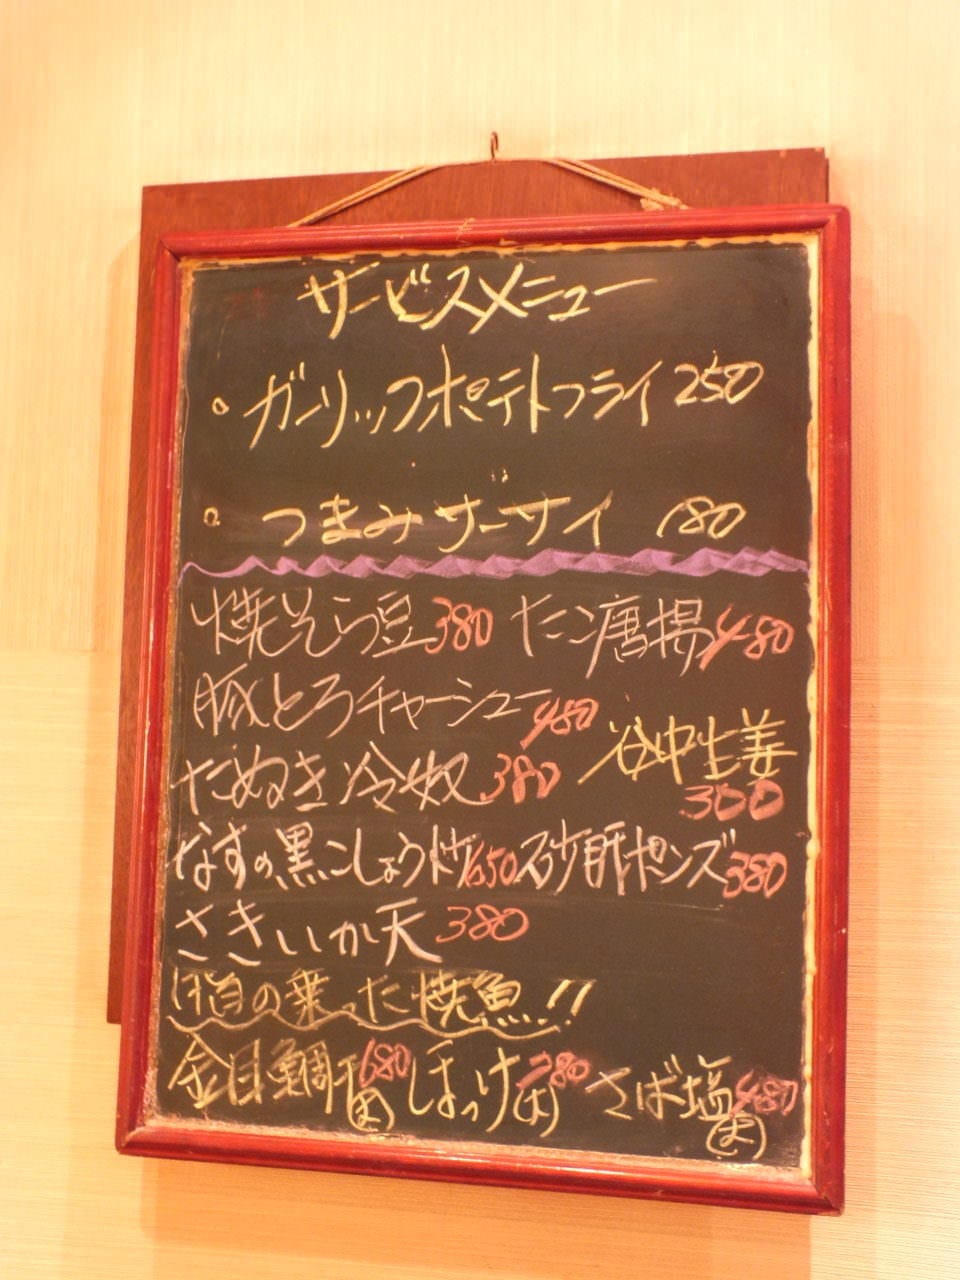 サービスメニュー
ガーリックポテトフライ 250
つまみザーサイ 180
焼そら豆 380 たこ唐揚 480
豚とろチャーシュー 480
谷中生姜 300
たぬき冷奴 380
なすの黒こしょう炒 650 砂肝ポンズ 380
さきいか天 380
脂の乗った焼魚!!
金目鯛干 680 ほっけ 780 さば塩 480